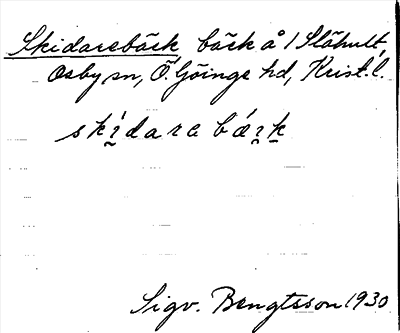 Skidarebäck bäck å / Slähult,
Osby sn, Ö. Göinge hd, Krist. l.
skḭ́dare bǽi̯k̠
Sigv. Bengtsson 1930